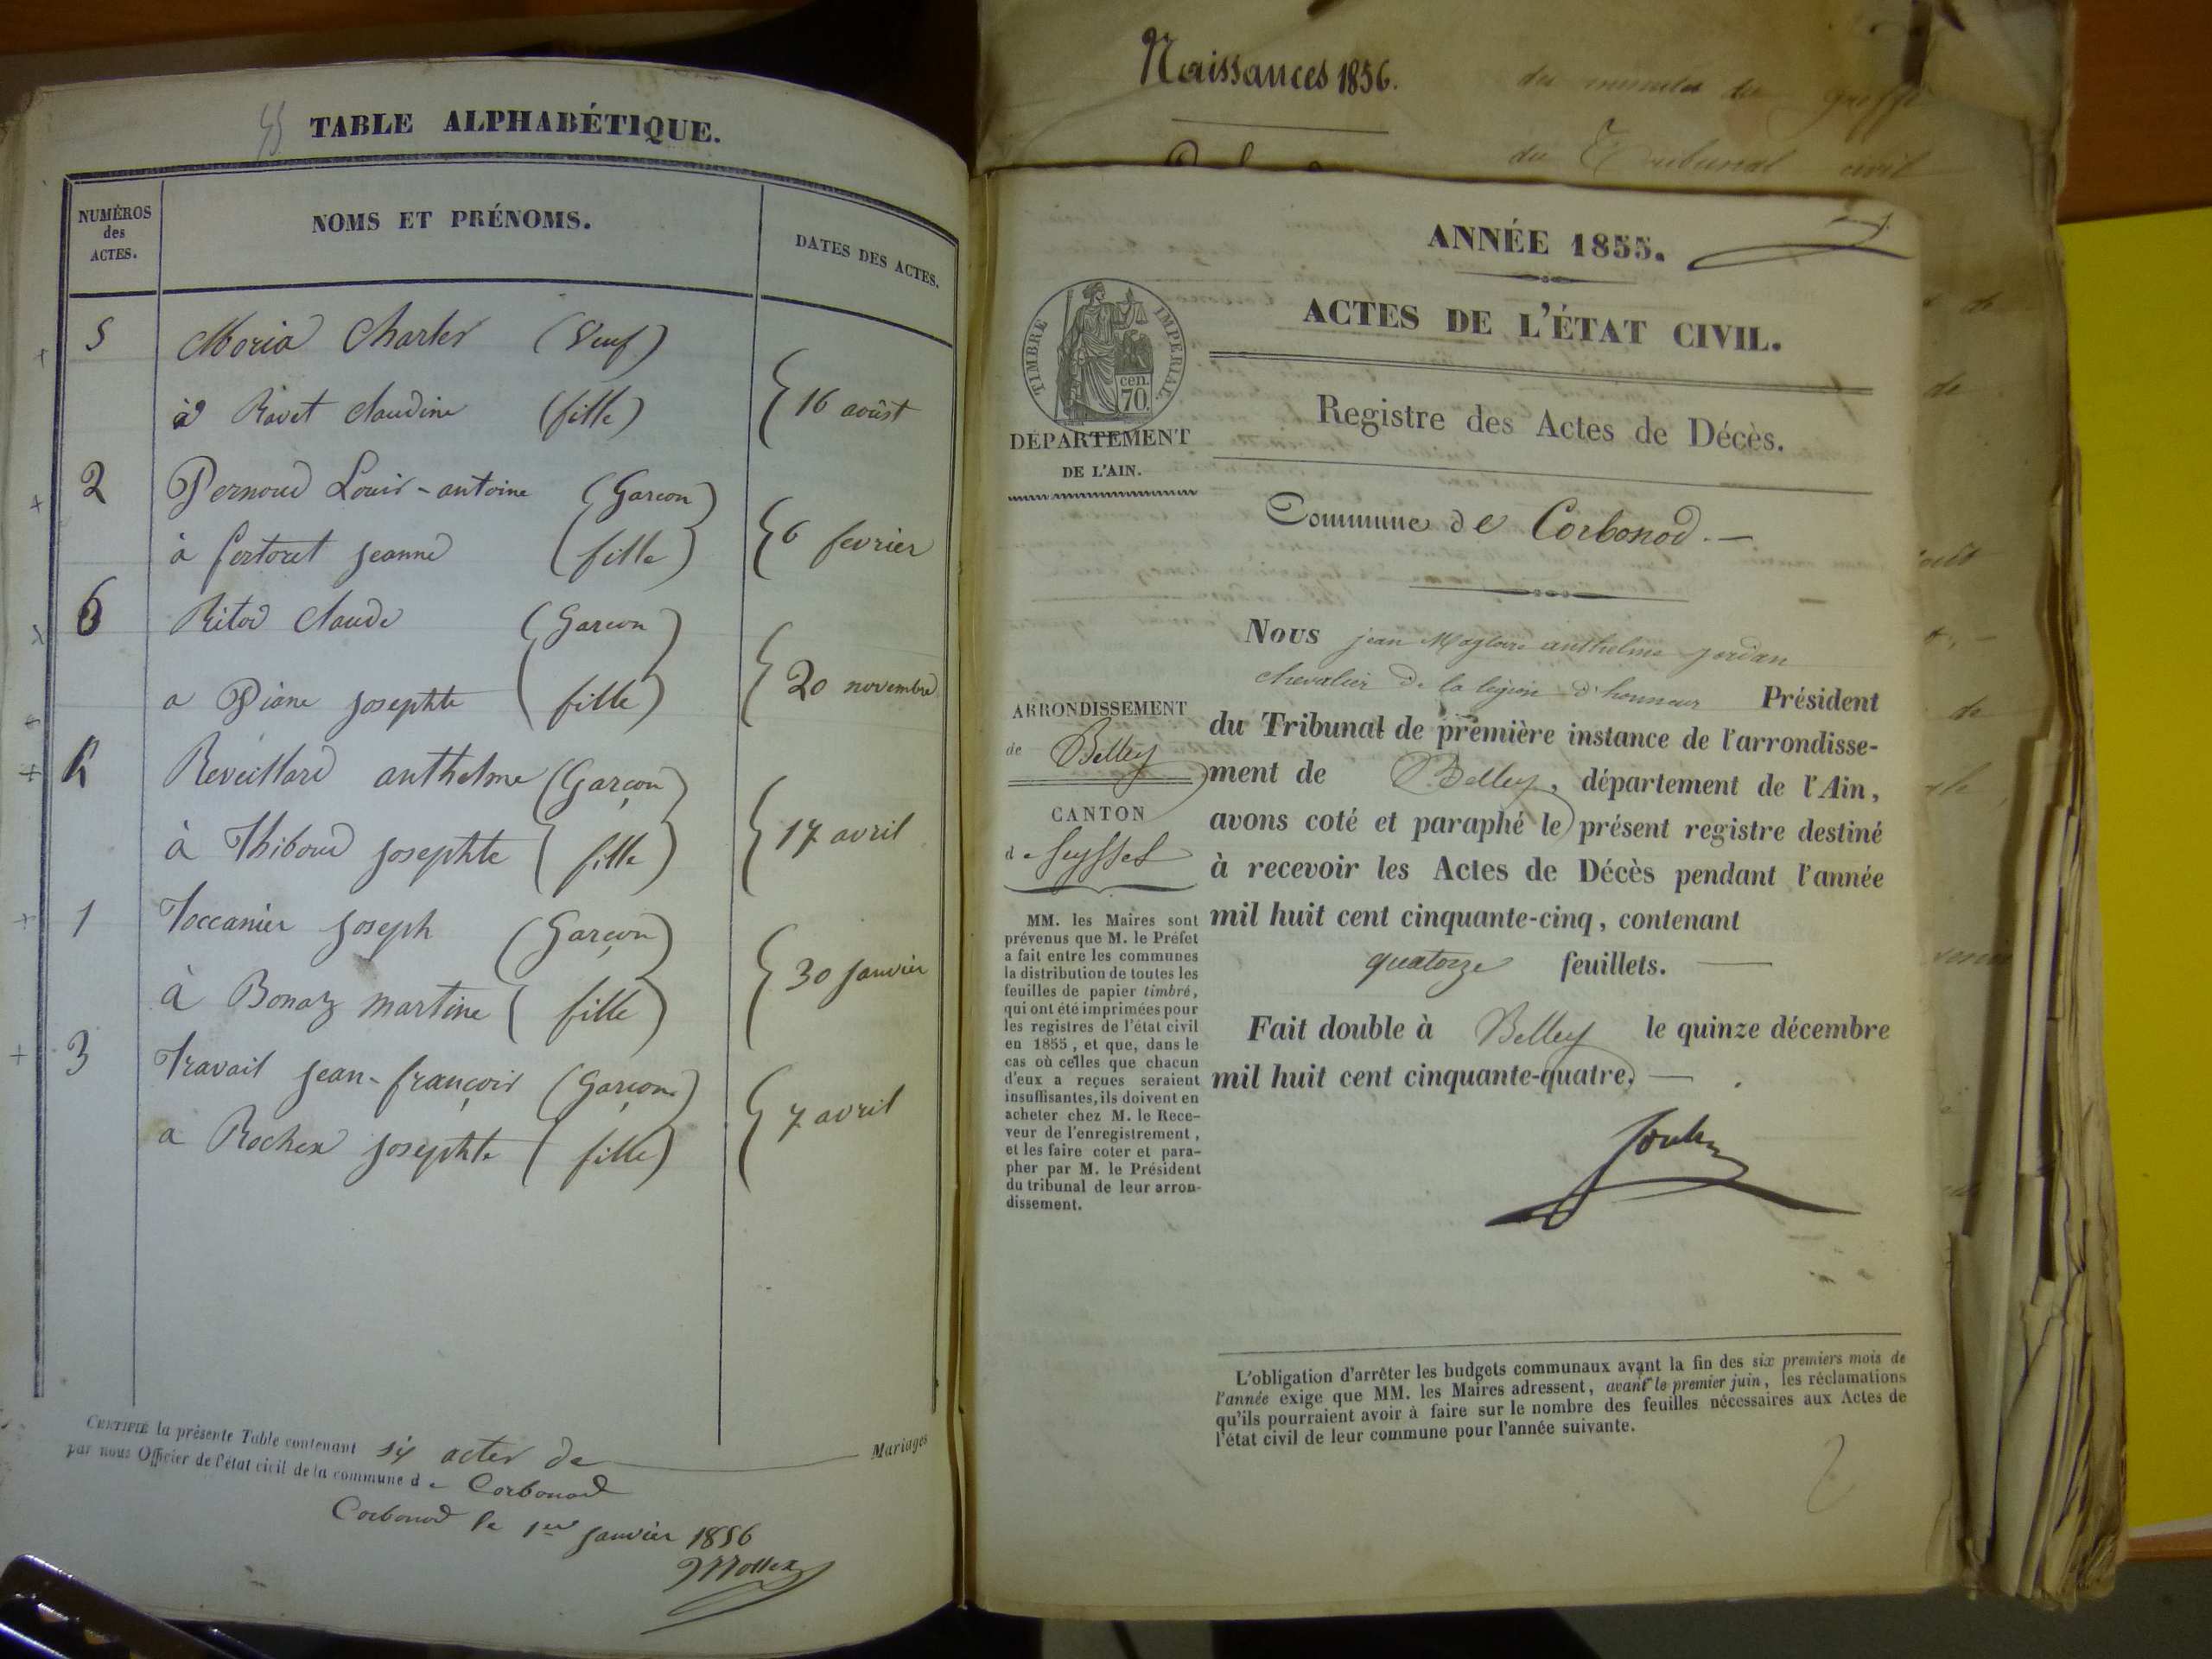 TABLE ALPHABÉTIQUE.
NUMÉROS
des
ACTES.
NOMS ET PRÉNOMS.
DATES DES ACTES.
5 Moria Charles (Veuf)
à Ravet Claudine (fille) 16 août
2 Pernoud Louis-antoine (Garcon)
à Fertoret jeanne (fille) 6 fevrier
6 Ritod Claude (Garcon)
a Diane josephte (fille) 20 novembre
4 Reveillard anthelme (Garçon)
à Thiboud josephte (fille) 17 avril
1 Toccanier joseph (Garçon)
à Bonaz martine (fille) 30 janvier
3 Travail jean-françois (Garçon)
a Rochex josephte (fille) 7 avril
CERTIFIÉ la présente Table contenant six actes de Mariages
par nous Officier de l'état civil de la commune de Corbonod
Corbonod le 1er janvier 1856
Naissances 1856.
du Tribunal civil
ANNÉE 1855.
ACTES DE L'ÉTAT CIVIL.
TIMBRE IMPÉRIAL
cen.
70.
DÉPARTEMENT
DE L'AIN.
Registre des Actes de Décès.
Commune de Corbonod.
Nous jean Magloire anthelme jordan
chevalier de la légion d'honneur Président
du Tribunal de première instance de l'arrondisse-
ment de Belley, département de l'Ain,
avons coté et paraphé le présent registre destiné
à recevoir les Actes de Décès pendant l'année
mil huit cent cinquante-cinq, contenant
quatorze feuillets.
Fait double à Belley le quinze décembre
mil huit cent cinquante-quatre.
ARRONDISSEMENT
de Belley
CANTON
de Seyssel
MM. les Maires sont
prévenus que M. le Préfet
a fait entre les communes
la distribution de toutes les
feuilles de papier timbré,
qui ont été imprimées pour
les registres de l'état civil
en 1855, et que, dans le
cas où celles que chacun
d'eux a reçues seraient
insuffisantes, ils doivent en
acheter chez M. le Rece-
veur de l'enregistrement,
et les faire coter et para-
pher par M. le Président
du tribunal de leur arron-
dissement.
L'obligation d'arrêter les budgets communaux avant la fin des six premiers mois de
l'année exige que MM. les Maires adressent, avant le premier juin, les réclamations
qu'ils pourraient avoir à faire sur le nombre des feuilles nécessaires aux Actes de
l'état civil de leur commune pour l'année suivante.